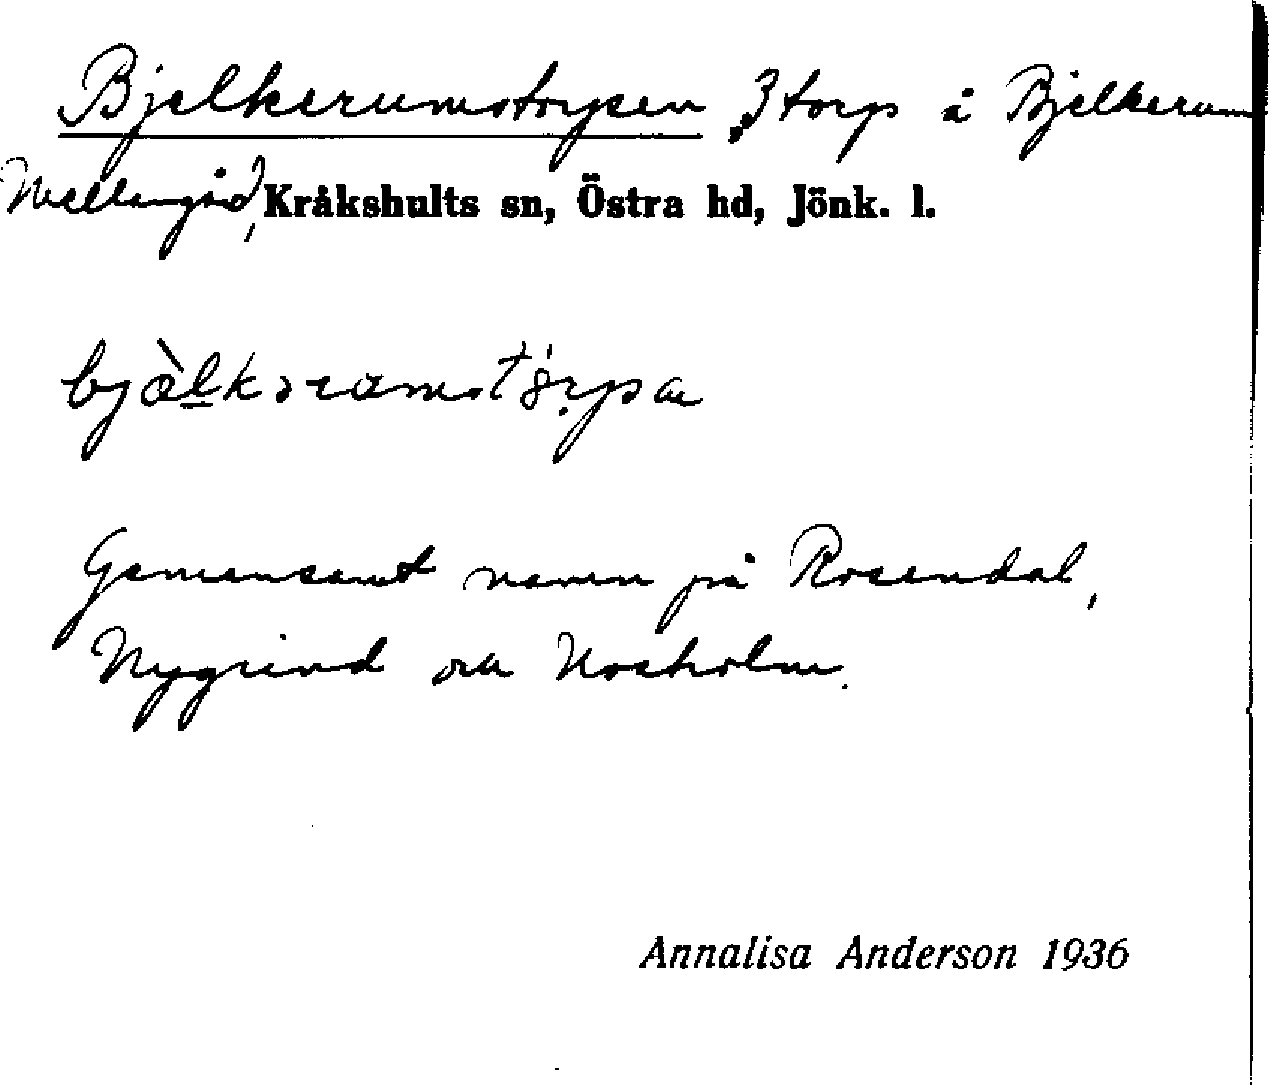 Bjelkerumstorpen, 3 torp å Bjelkerum
Mellangård, Kråkshults sn, Östra hd, Jönk. l.
Gemensamt namn på Rosendal,
Nygrind och Nosholm.
Annalisa Anderson 1936